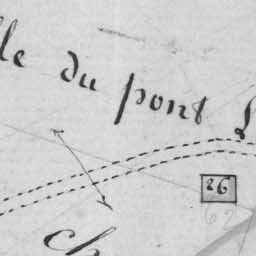 lle du pont L
26
67
ch